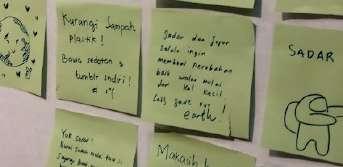 Kurangi Sampah
Plastik!
Bawa sedotan &
tumblr sndiri!
Sadar dan Jujur
Selalu ingin
membuat perubahan
baik walau mulai
dari hal kecil
Lets save our
earth!
SADAR
Yuk Sadar!
Makasih